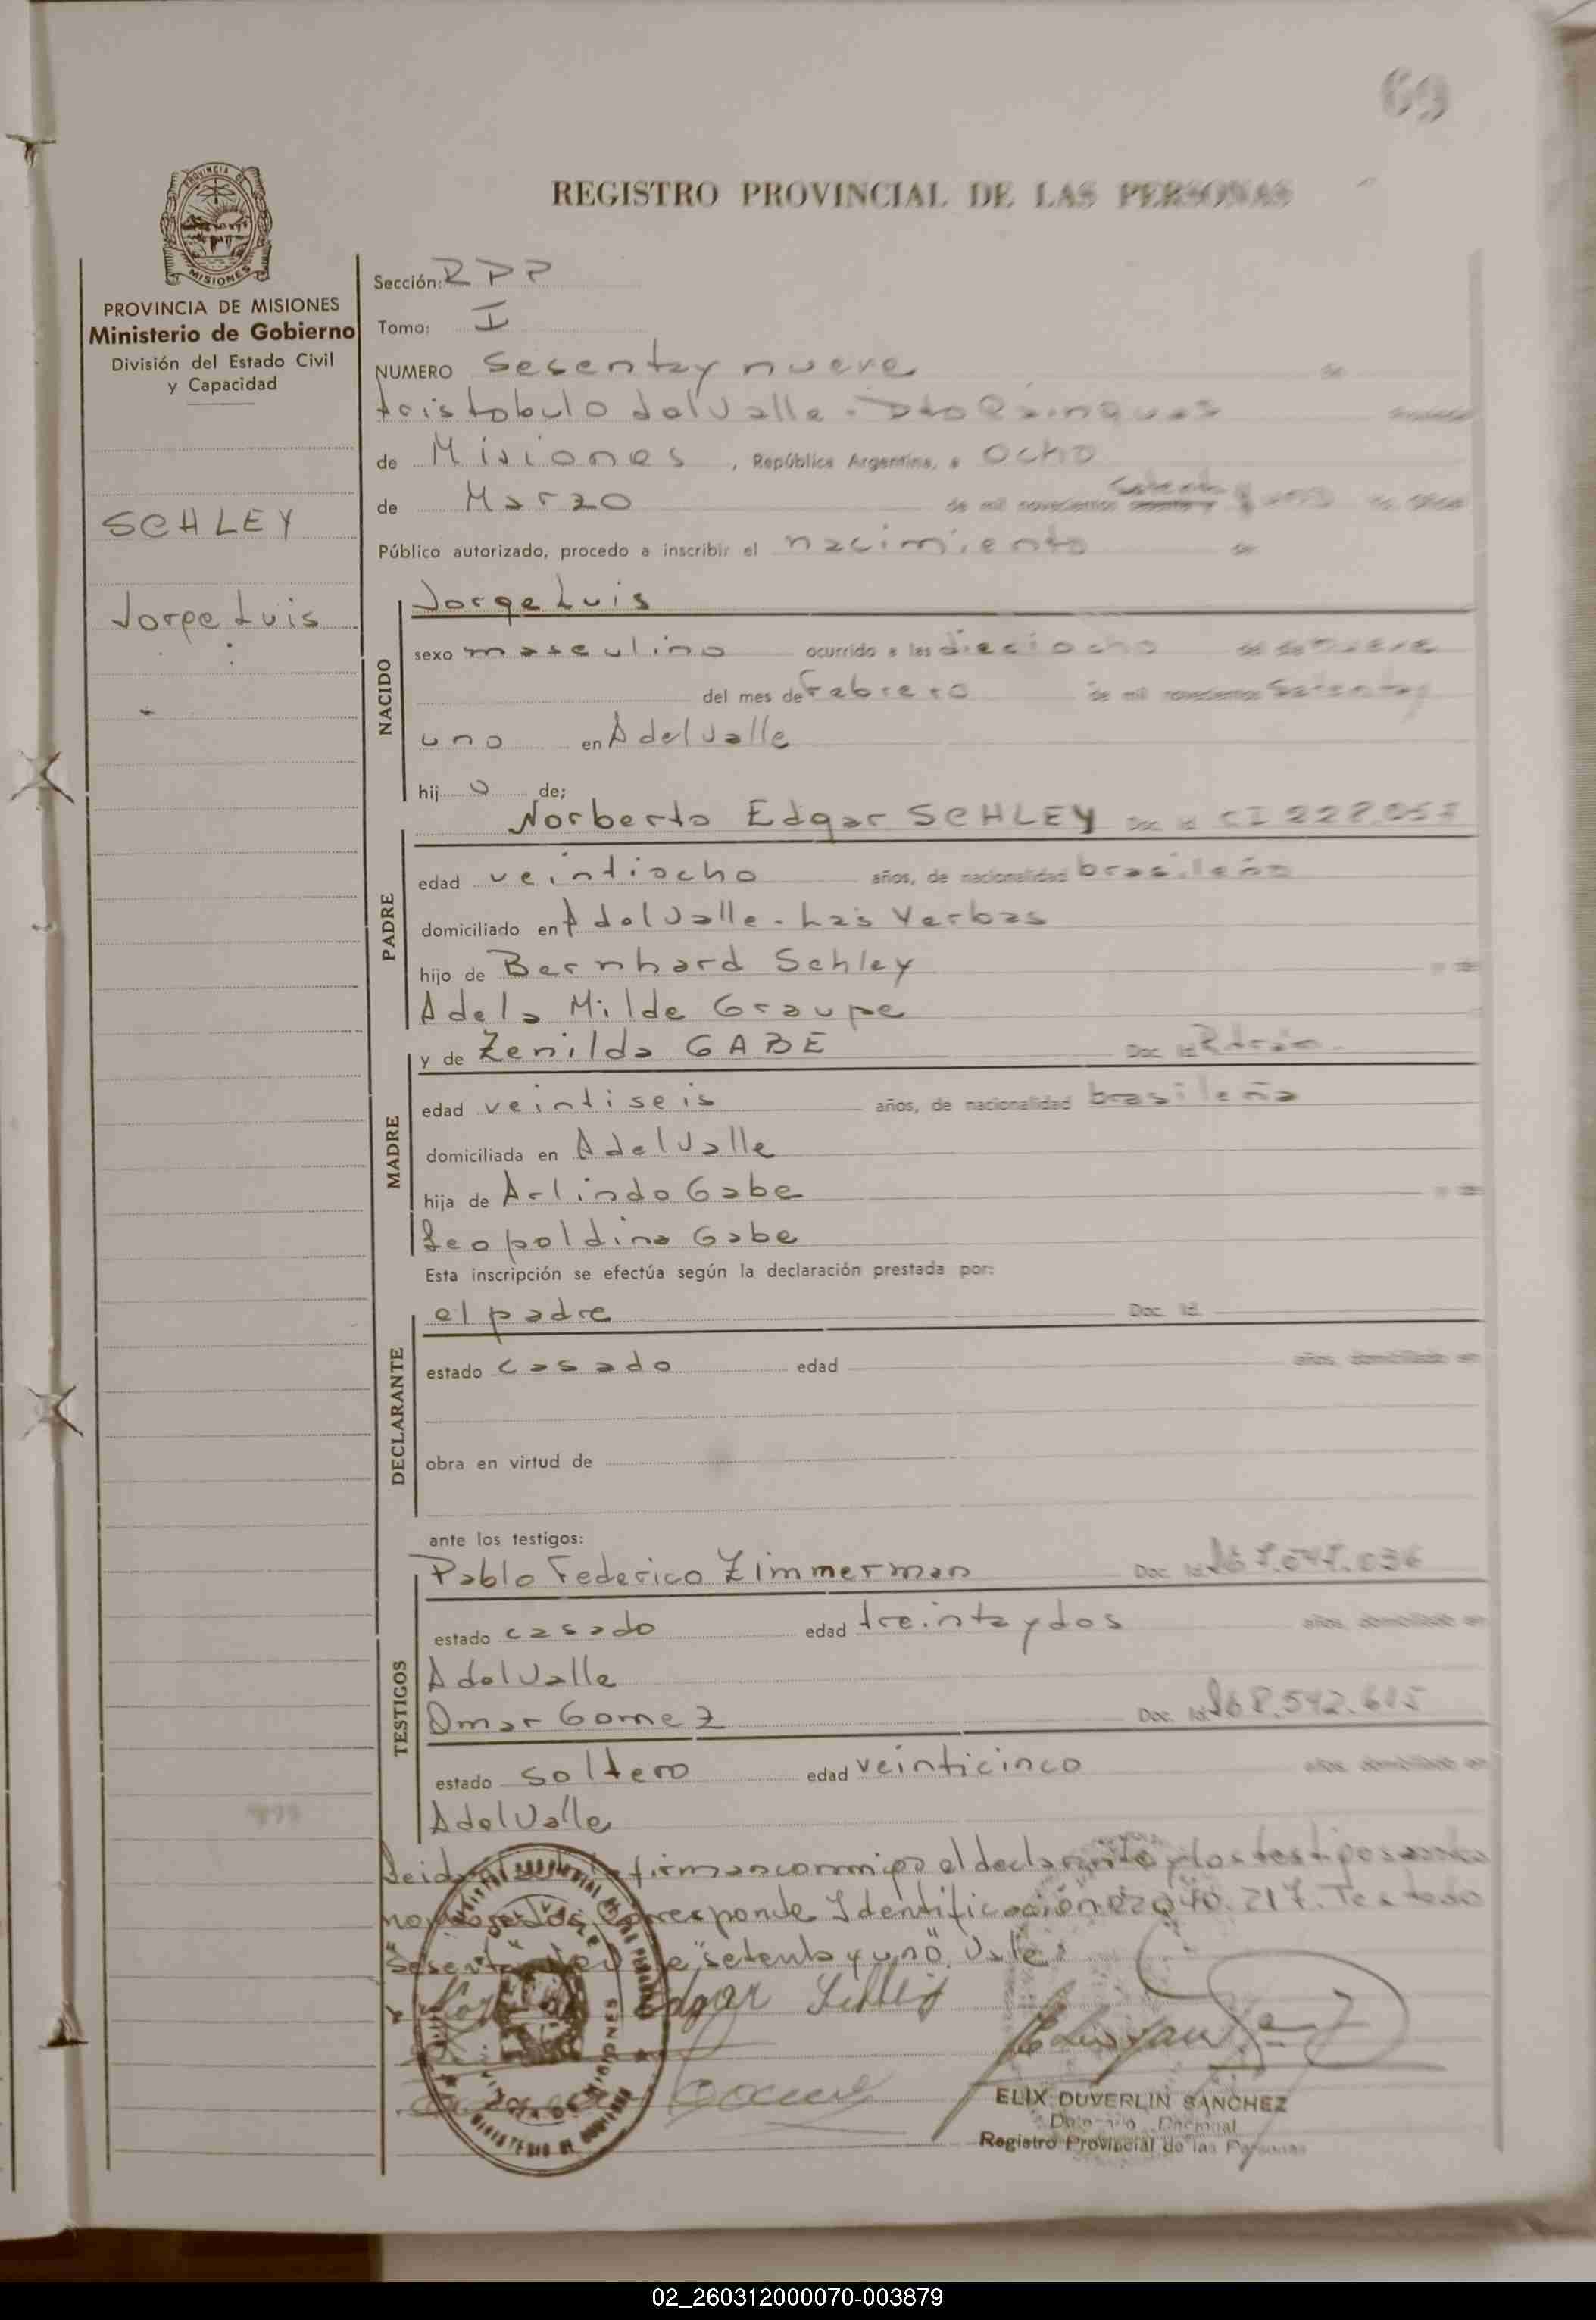 69
REGISTRO PROVINCIAL DE LAS PERSONAS
PROVINCIA DE MISIONES
PROVINCIA DE MISIONES
Ministerio de Gobierno
División del Estado Civil
y Capacidad
SCHLEY
Jorge Luis
Sección: RPP
Tomo: I
NUMERO Sesenta y nueve en
Aristobulo del Valle - Dto Cainguas
de Misiones, República Argentina, a Ocho
de Marzo de mil novecientos setenta y uno
Público autorizado, procedo a inscribir el nacimiento de
NACIDO
Jorge Luis
sexo masculino ocurrido a las dieciocho
del mes de Febrero de mil novecientos Setenta y
uno en A del Valle
hij o de;
PADRE
Norberto Edgar SCHLEY Doc. Id. CI
edad veintiocho años, de nacionalidad brasileño
domiciliado en A del Valle - Las Yerbas
hijo de Bernhard Schley y de
Adela Milde Graupe
MADRE
y de Zenilda GABE Doc. Id.
edad veintiseis años, de nacionalidad brasileña
domiciliada en A del Valle
hija de Arlindo Gabe y de
Leopoldina Gabe
Esta inscripción se efectúa según la declaración prestada por:
DECLARANTE
el padre Doc. Id.
estado casado edad años, domiciliado en
obra en virtud de
ante los testigos:
TESTIGOS
Pablo Federico Zimmerman Doc. Id.
estado casado edad treinta y dos años, domiciliado en
A del Valle
Omar Gomez Doc. Id. 8.542.615
estado soltero edad veinticinco años, domiciliado en
A del Valle
Leida firman conmigo el declarante y los testigos
Corresponde Identificación 217. Testado
"setenta y uno" Vale
Edgar Schley
ELIX DUVERLIN SANCHEZ
Registro Provincial de las Personas
02_260312000070-003879